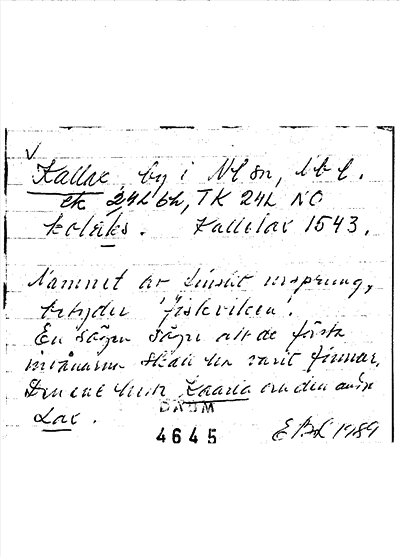 Kallax, by i Nl sn, Nb l.
ek 24L bh, TK 24L NO
kolaks. Kallelax 1543.
Namnet är finskt ursprung,
betyder 'fiskviken'.
En sägen säger att de första
invånarna skall ha varit finnar.
Den ene hette Kaaria och den andre
Lax.
DAUM
4645
EBL 1989